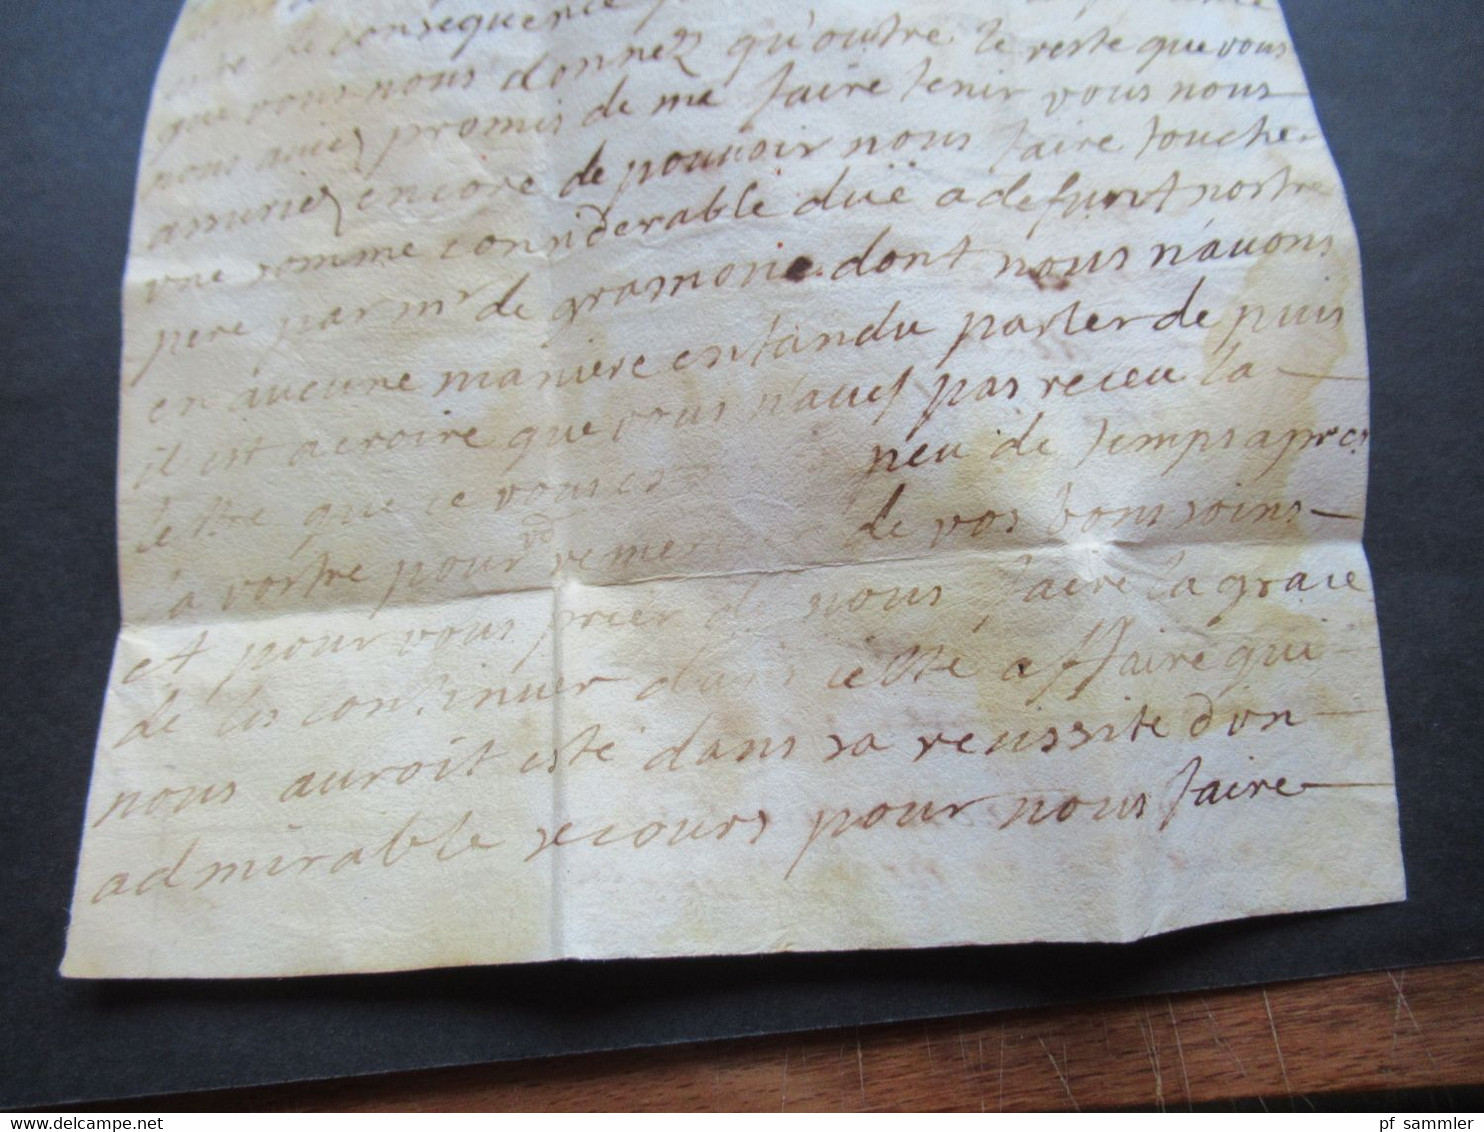 de consequence
que vous nous donnez qu'outre le reste que vous
nous aviez promis de me faire tenir vous nous
assuriez encore de pouvoir nous faire toucher
vne somme considerable düe a defunt nostre
pere par mr de gramone dont nous n'auons
en aucune maniere entandu parler de puis
il est a croire que vous n'auez pas receu la
lettre que ie vous es peu de temps apres
la vostre pour vo remercier de vos bons soins
et pour vous prier de nous faire la grace
de les continuer dans cette affaire qui
nous auroit esté dans sa reussite d'vn
admirable secours pour nous faire
pf sammler